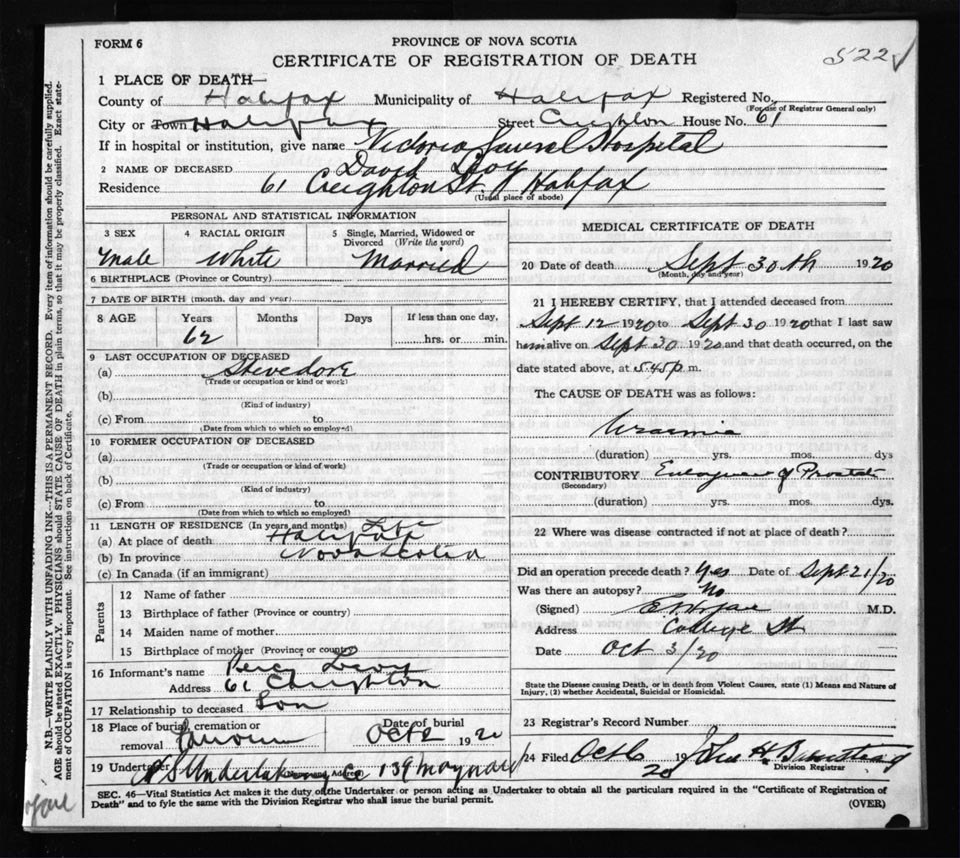 FORM 6
PROVINCE OF NOVA SCOTIA
CERTIFICATE OF REGISTRATION OF DEATH
522
1 PLACE OF DEATH—
County of Halifax Municipality of Halifax Registered No.
(For use of Registrar General only)
City or Town Halifax Street Creighton House No. 61
If in hospital or institution, give name Victoria General Hospital
2 NAME OF DECEASED David Levy
Residence 61 Creighton St Halifax
(Usual place of abode)
PERSONAL AND STATISTICAL INFORMATION
3 SEX 4 RACIAL ORIGIN 5 Single, Married, Widowed or Divorced (Write the word)
Male White Married
6 BIRTHPLACE (Province or Country)
7 DATE OF BIRTH (month, day and year)
8 AGE Years Months Days If less than one day,
62 hrs. or min.
9 LAST OCCUPATION OF DECEASED
(a) Stevedore
(Trade or occupation or kind or work)
(b)
(Kind of industry)
(c) From to
(Date from which to which so employed)
10 FORMER OCCUPATION OF DECEASED
(a)
(Trade or occupation or kind of work)
(b)
(Kind of industry)
(c) From to
(Date from which to which so employed)
11 LENGTH OF RESIDENCE (In years and months) Life
(a) At place of death Halifax
(b) In province Nova Scotia
(c) In Canada (if an immigrant)
Parents
12 Name of father
13 Birthplace of father (Province or country)
14 Maiden name of mother
15 Birthplace of mother (Province or country)
16 Informant's name Percy Levy
Address 61 Creighton
17 Relationship to deceased Son
18 Place of burial, cremation or removal Fairview
Date of burial Oct 2 1920
19 Undertaker N S Undertaking Co 139 Maynard
(Name and Address)
MEDICAL CERTIFICATE OF DEATH
20 Date of death Sept 30th 1920
(Month, day and year)
21 I HEREBY CERTIFY, that I attended deceased from
Sept 12 1920 to Sept 30 1920 that I last saw
him alive on Sept 30 1920 and that death occurred, on the
date stated above, at 5.45 p m.
The CAUSE OF DEATH was as follows:
Uraemia
(duration) yrs. mos. dys
CONTRIBUTORY Enlargement of Prostate
(Secondary)
(duration) yrs. mos. dys.
22 Where was disease contracted if not at place of death?
Did an operation precede death? Yes Date of Sept 21/20
Was there an autopsy? No
(Signed) M.D.
Address College St
Date Oct 3/20
State the Disease causing Death, or in death from Violent Causes, state (1) Means and Nature of
Injury, (2) whether Accidental, Suicidal or Homicidal.
23 Registrar's Record Number
24 Filed Oct 6 1920 John H.
Division Registrar
SEC. 46—Vital Statistics Act makes it the duty of the Undertaker or person acting as Undertaker to obtain all the particulars required in the "Certificate of Registration of
Death" and to fyle the same with the Division Registrar who shall issue the burial permit.
(OVER)
N.B.—WRITE PLAINLY WITH UNFADING INK—THIS IS A PERMANENT RECORD. Every item of information should be carefully supplied.
AGE should be stated EXACTLY. PHYSICIANS should STATE CAUSE OF DEATH in plain terms, so that it may be properly classified. Exact state-
ment of OCCUPATION is very important. See instructions on back of Certificate.